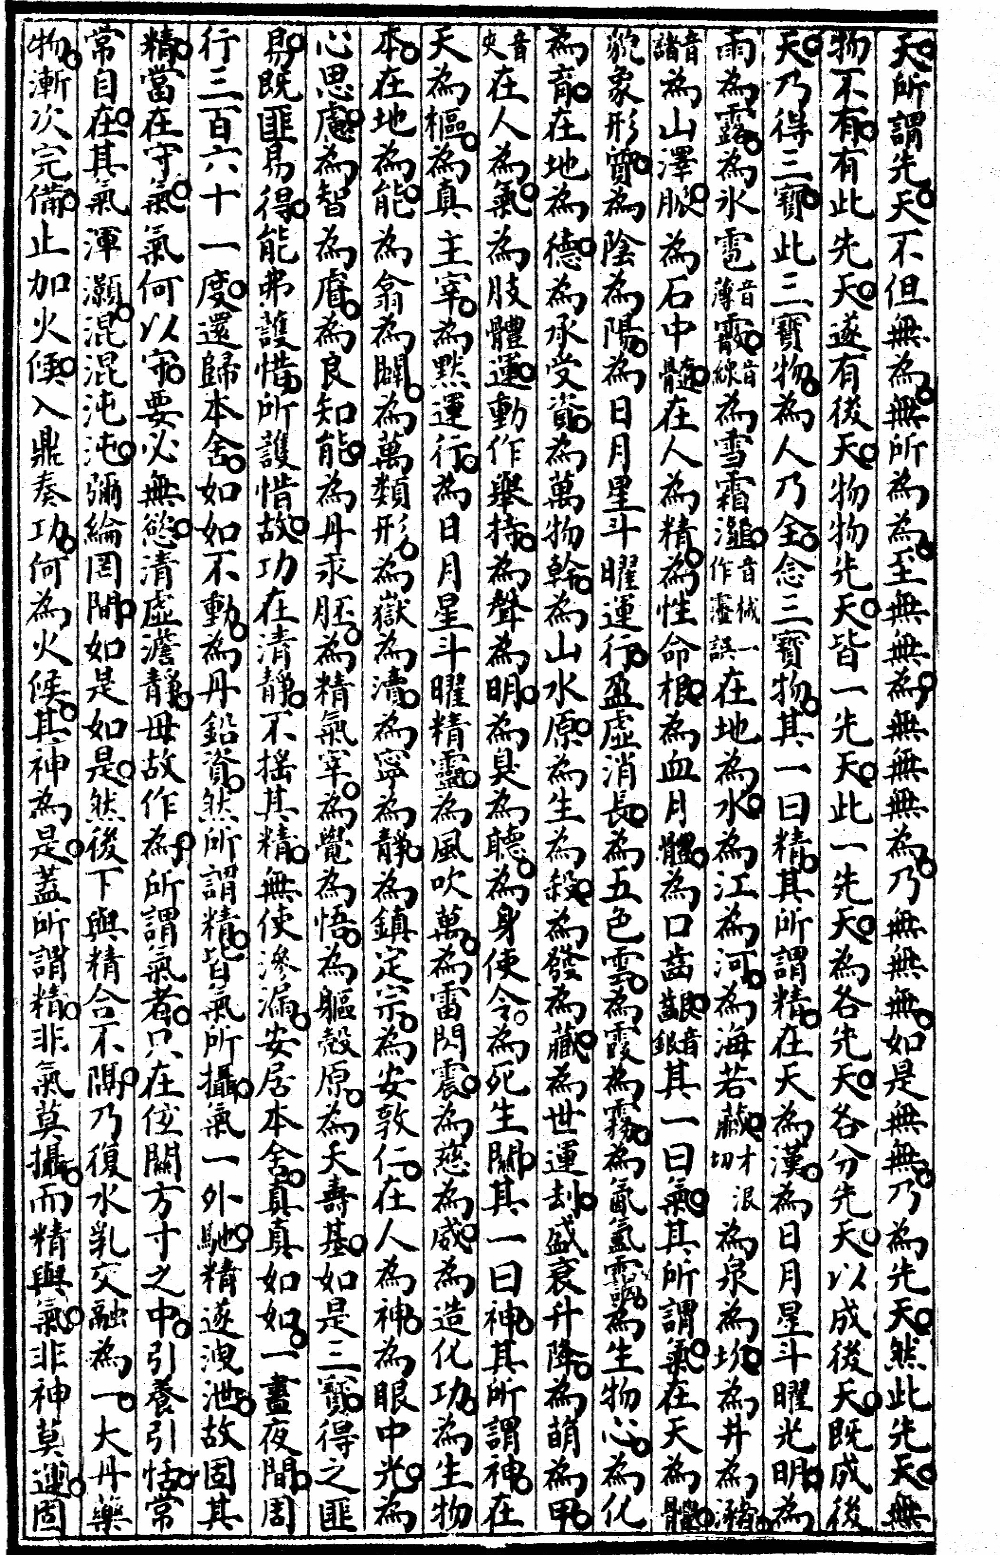 天所謂先天不但無為無所為為至無無為無無無為乃無無無如是無無乃為先天然此先天無
物不有有此先天遂有後天物物先天皆一先天此一先天為各先天各分先天以成後天既成後
天乃得三寶此三寶物為人乃全念三寶物其一曰精其所謂精在天為漢為日月星斗曜光明為
雨為露為氷雹音薄霰音線為雪霜音械一作誤在地為水為江為河為海若才浪切為泉為坎為井為瀦
音諸為山澤脈為石中髓在人為精為性命根為血月體為口齒齦音銀其一曰氣其所謂氣在天為體
貌象形質為陰為陽為日月星斗曜運行盈虛消長為五色雲為霞為霧為氤氳為生物心為化
為育在地為德為承受資為萬物幹為山水原為生為殺為發為藏為世運刦盛衰升降為萌為甲
音夾在人為氣為肢體運動作舉持為聲為明為臭為聽為身使令為死生關其一曰神其所謂神在
天為樞為真主宰為默運行為日月星斗曜精靈為風吹萬為雷閃震為慈為威為造化功為生物
本在地為能為翕為闢為萬類形為嶽為瀆為寧為靜為鎮定宗為安敦仁在人為神為眼中光為
心思慮為智為睿為良知能為丹汞胚為精氣宰為覺為悟為軀殼原為夭壽基如是三寶得之匪
易既匪易得能弗護惜所護惜故功在清靜不搖其精無使滲漏安居本舍真真如如一晝夜間周
行三百六十一度還歸本舍如如不動為丹鉛資然所謂精皆氣所攝氣一外馳精遂洩泄故固其
精當在守氣氣何以守要必無慾清虛澹靜毋故作為所謂氣者只在住關方寸之中引養引恬常
常自在其氣渾灝混混沌沌彌綸罔間如是如是然後下與精合不隔乃復水乳交融為一大丹藥
物漸次完備止加火候入鼎奏功何為火候其神為是蓋所謂精非氣莫攝而精與氣非神莫運固